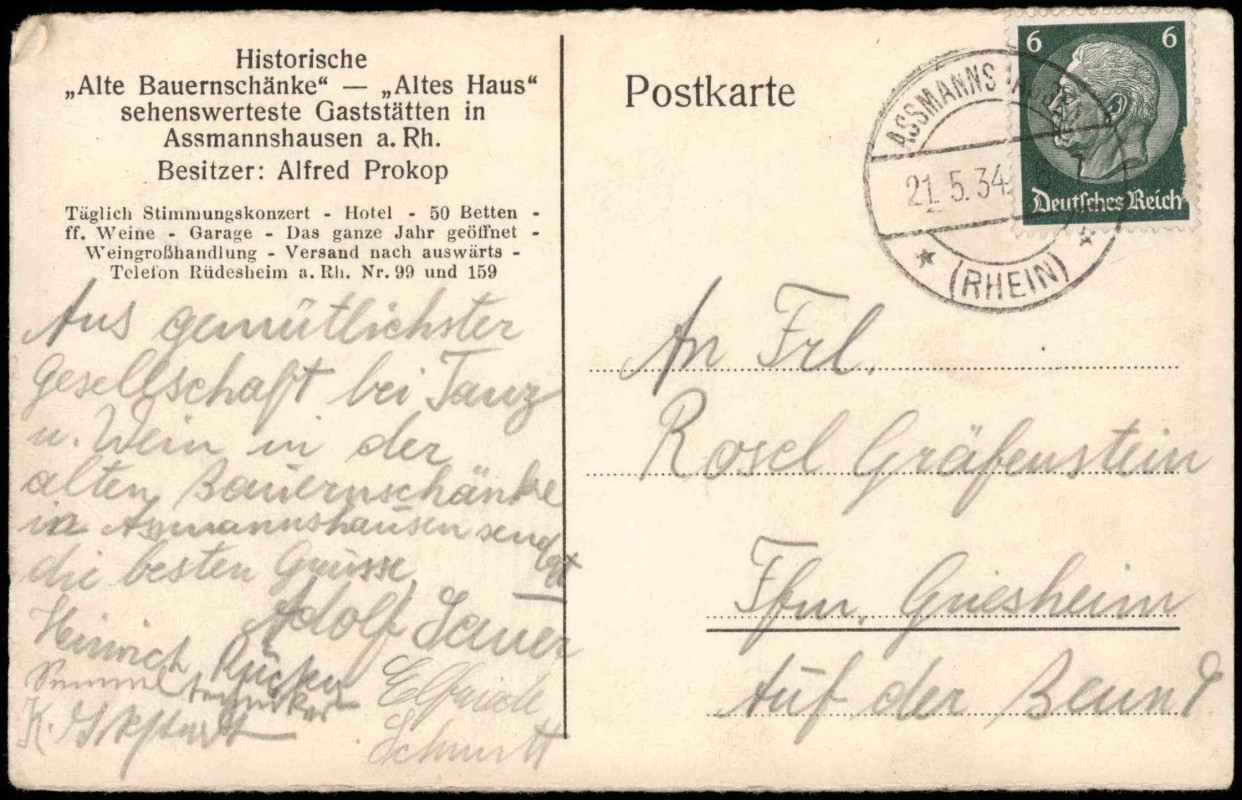 Historische
„Alte Bauernschänke“ — „Altes Haus“
sehenswerteste Gaststätten in
Assmannshausen a. Rh.
Besitzer: Alfred Prokop
Täglich Stimmungskonzert - Hotel - 50 Betten -
ff. Weine - Garage - Das ganze Jahr geöffnet -
Weingroßhandlung - Versand nach auswärts -
Telefon Rüdesheim a. Rh. Nr. 99 und 159
Aus gemütlichster
Gesellschaft bei Tanz
u. Wein in der
alten Bauernschänke
in Assmannshausen sendet
die besten Grüsse
Adolf Sauer
Heinrich Rücker
Elfriede
Schmitt
K.
Postkarte
6 6
Deutsches Reich
ASSMANNSHAUSEN
21.5.34
(RHEIN)
An Frl.
Rosel Gräfenstein
Ffm. Griesheim
Auf der Beund